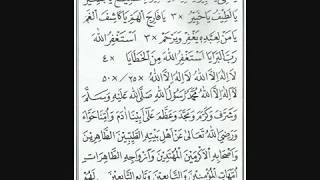 يَا لَطِيفُ يَا خَبِيرُ ×٣ يَا فَارِجَ الْهَمِّ يَا كَاشِفَ الْغَمِّ
يَا مَنْ لِعَبْدِهِ يَغْفِرُ وَيَرْحَمُ ×٣ اَسْتَغْفِرُ اللهَ
رَبَّ الْبَرَايَا اَسْتَغْفِرُ اللهَ مِنَ الْخَطَايَا ×٤
لَا اِلٰهَ اِلَّا اللهُ لَا اِلٰهَ اِلَّا اللهُ ×٢٥/×٥٠
لَا اِلٰهَ اِلَّا اللهُ مُحَمَّدٌ رَسُوْلُ اللهِ صَلَّى اللهُ عَلَيْهِ وَسَلَّمَ
وَشَرَّفَ وَكَرَّمَ وَمَجَّدَ وَعَظَّمَ عَلَى اَبِيْنَا اٰدَمَ وَاُمِّنَا حَوَّاءَ
وَرَضِيَ اللهُ تَعَالَى عَنْ اَهْلِ بَيْتِهِ الطَّيِّبِيْنَ الطَّاهِرِيْنَ
وَاَصْحَابِهِ الْاَكْرَمِيْنَ الْمُهْتَدِيْنَ وَاَزْوَاجِهِ الطَّاهِرَاتِ
اُمَّهَاتِ الْمُؤْمِنِيْنَ وَالتَّابِعِيْنَ وَتَابِعِ التَّابِعِيْنَ لَهُمْ